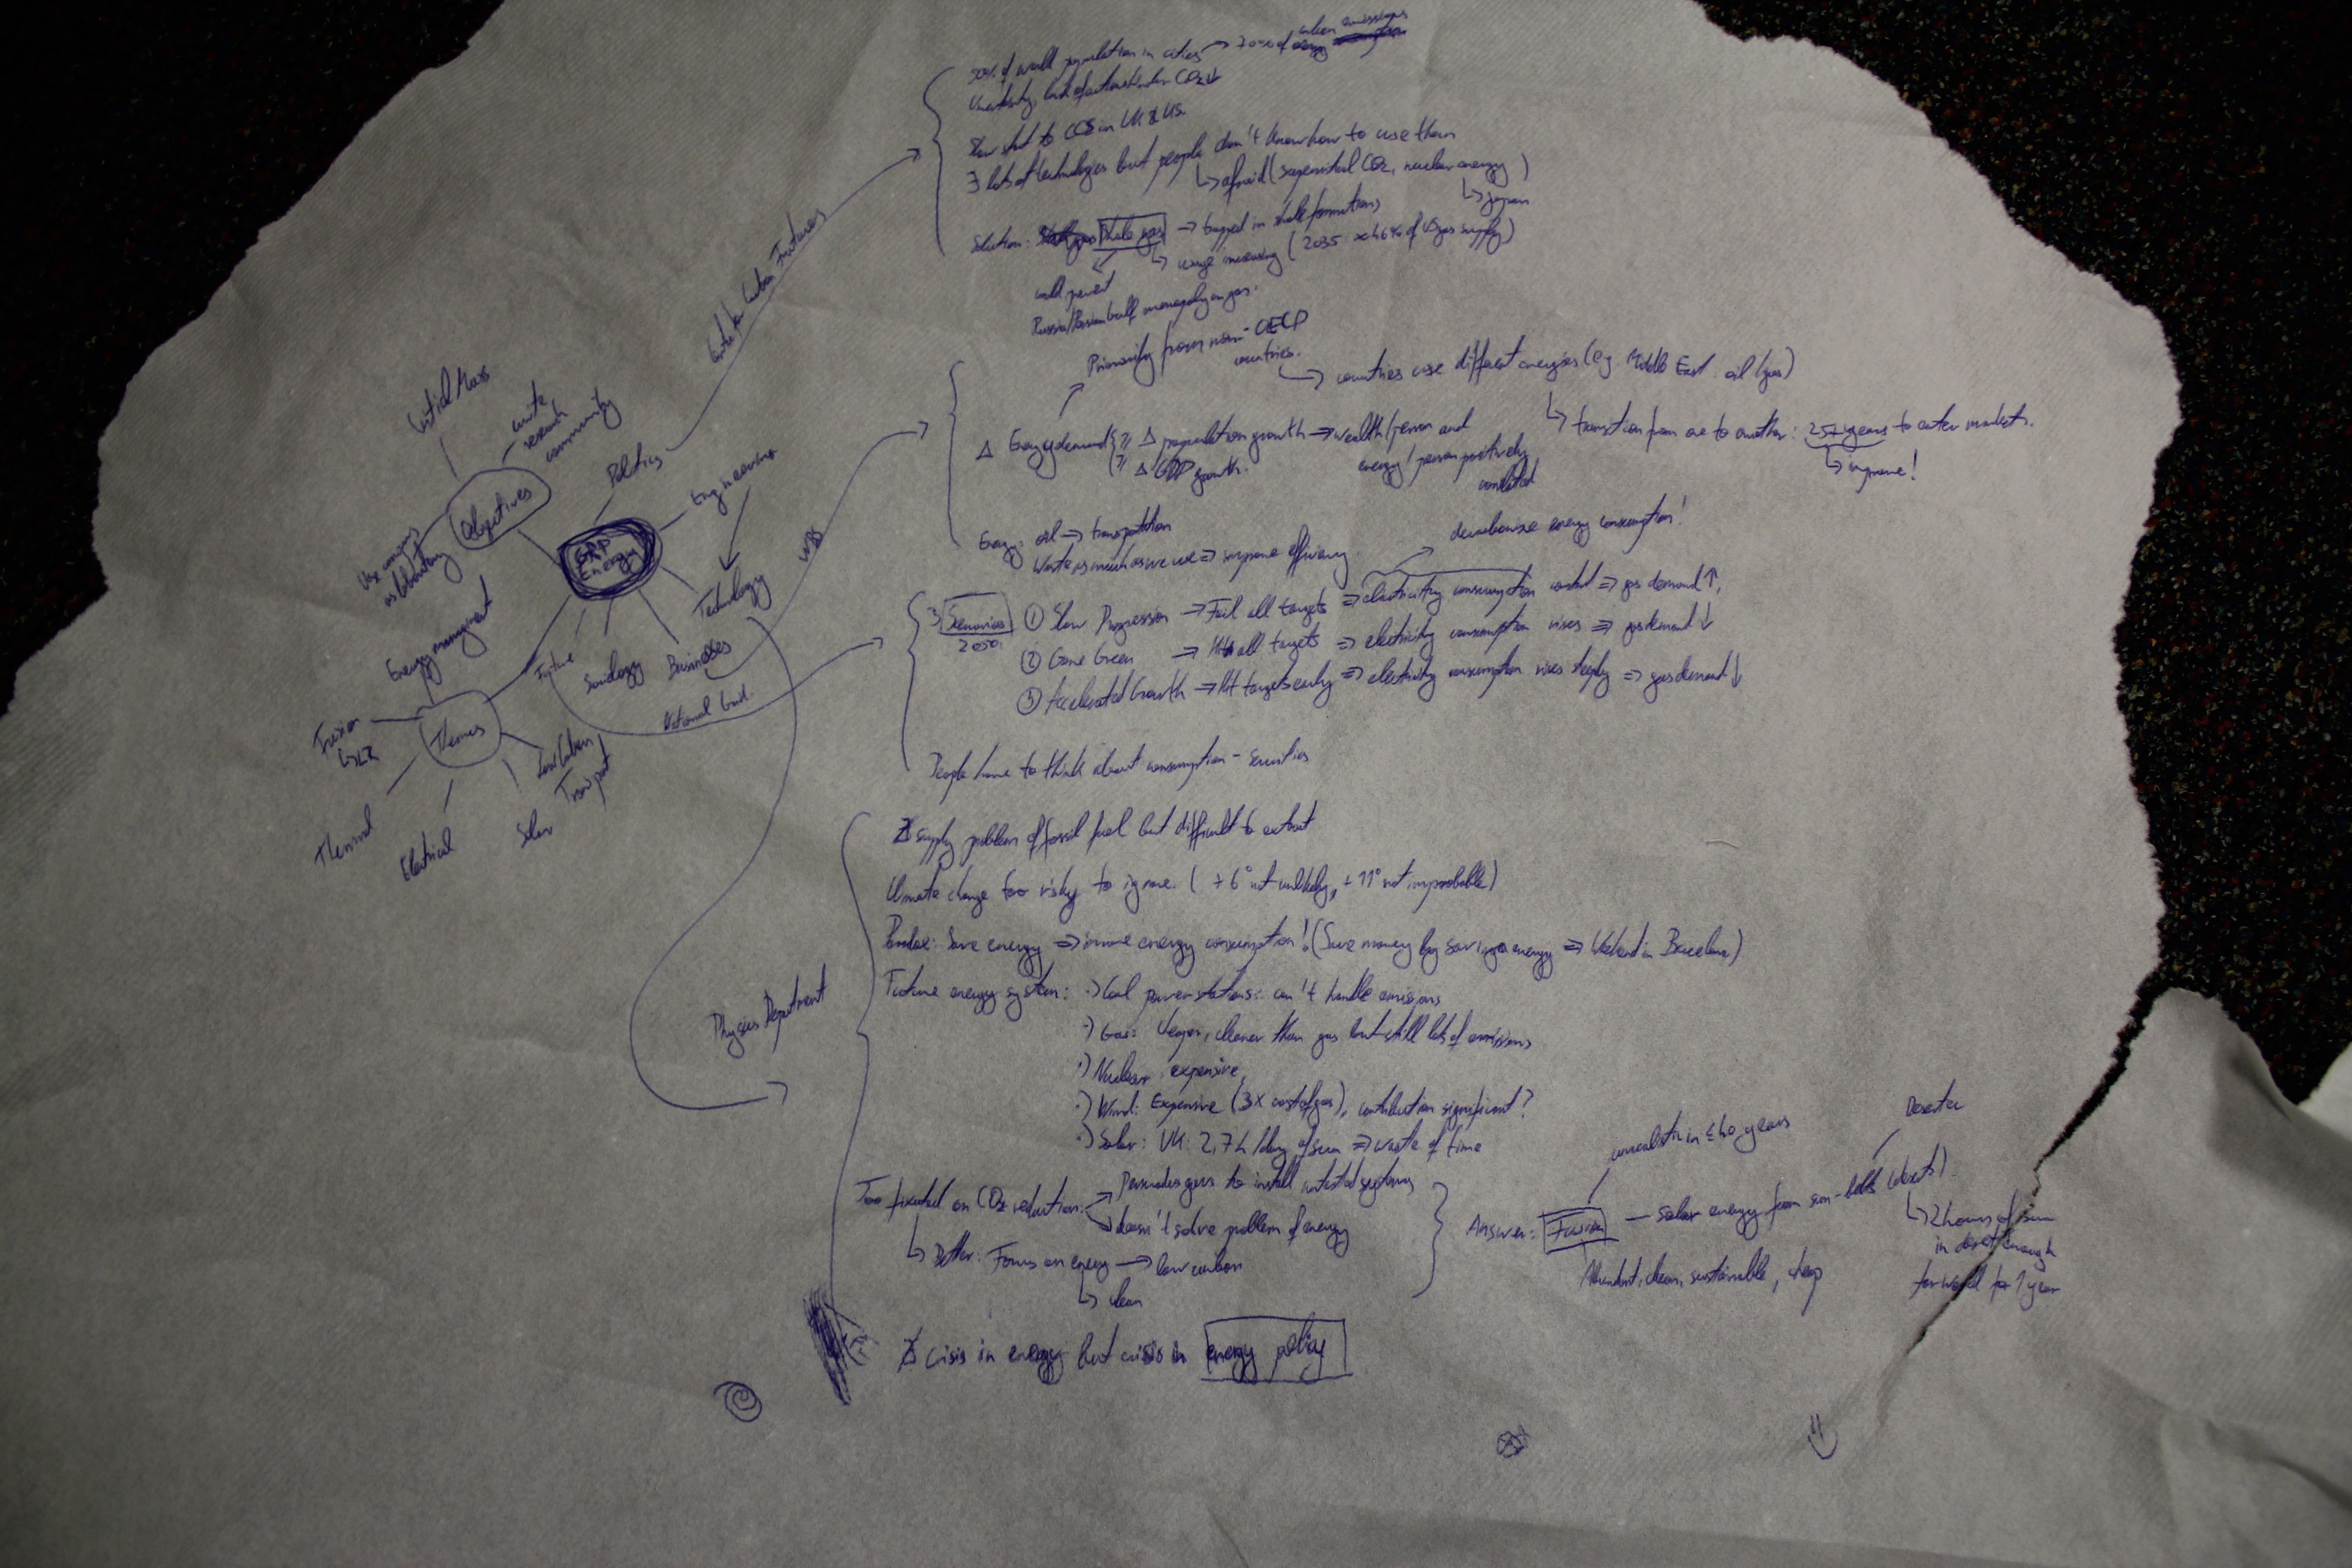 Critical Mass
unite
research
community
Objectives
Use campus
as laboratory
Politics
Engineering
GRP
Energy
Technology
Businesses
Sociology
Future
Energy management
Themes
Fusion
Thermal
Electrical
Solar
Low Carbon
Transport
Centre for Carbon Futures
WBS
National Grid
Physics Department
50% of world population in cities → 70% of carbon emissions
Uncertainty, lack of action to lower CO₂↓
Slow start to CCS in UK & US.
∃ lots of technologies but people don't know how to use them
↳ afraid (supercritical CO₂, nuclear energy)
↳ Japan
Solution: Shale gas → trapped in shale formations
↳ usage increasing (2035: 46% of US gas supply)
could prevent
Russia/Persian Gulf monopoly on gas.
Primarily from non-OECD
countries.
→ countries use different energies (e.g. Middle East: oil/gas)
↳ transition from one to another: 25 years to enter markets.
↳ improve!
Δ Energy demand { Δ population growth → wealth/person and
Δ GDP growth.
energy/person positively
correlated
Energy: oil → transportation
Waste as much as we use => improve efficiency
decarbonise energy consumption!
3 Scenarios
2050:
① Slow Progression → Fail all targets => electricity consumption constant => gas demand ↑,
② Gone Green → Hit all targets => electricity consumption rises => gas demand ↓
③ Accelerated Growth → Hit targets early => electricity consumption rises steeply => gas demand ↓
People have to think about consumption - Securities
∄ supply problem of fossil fuel but difficult to extract
Climate change too risky to ignore. (+6° not unlikely, +11° not improbable)
Paradox: Save energy => increase energy consumption! (Save money by saving energy => Weekend in Barcelona)
Future energy system: ·) Coal power stations: can't handle emissions
·) Gas: cheaper, cleaner than gas but still lots of emissions
·) Nuclear: expensive
·) Wind: Expensive (3x cost of gas), contribution significant?
·) Solar: UK: 2,7h/day of sun => waste of time
Too fixated on CO₂ reduction: → Persuades guys to install untested systems
→ doesn't solve problem of energy
↳ Better: Focus on energy → low carbon
↳ clean
unrealistic in ≤40 years
Desertec
Answer: Fusion — solar energy from sun-belts (deserts).
Abundant, clean, sustainable, cheap
↳ 2 hours of sun
in desert enough
for world for 1 year
∄ crisis in energy but crisis in energy policy